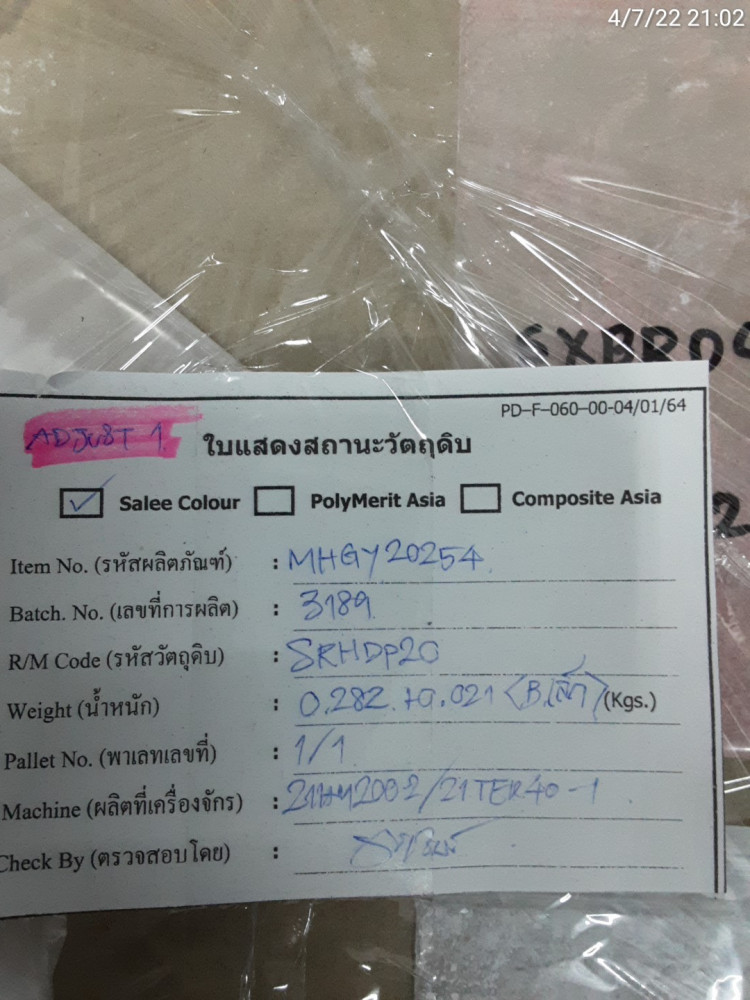 4/7/22 21:02
SXBR09
2
PD-F-060-00-04/01/64
ADJUST 1
ใบแสดงสถานะวัตถุดิบ
Salee Colour PolyMerit Asia Composite Asia
Item No. (รหัสผลิตภัณฑ์) : MHGY20254
Batch. No. (เลขที่การผลิต) : 3189
R/M Code (รหัสวัตถุดิบ) : SRHDP20
Weight (น้ำหนัก) : 0.282 +0.021 (Kgs.)
Pallet No. (พาเลทเลขที่) : 1/1
Machine (ผลิตที่เครื่องจักร) : /21TER40-1
Check By (ตรวจสอบโดย) :